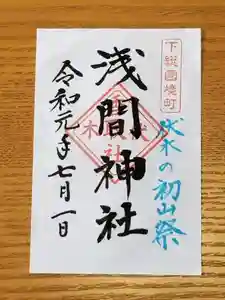 下総国境町
伏木の初山祭
浅間神社
令和元年七月一日